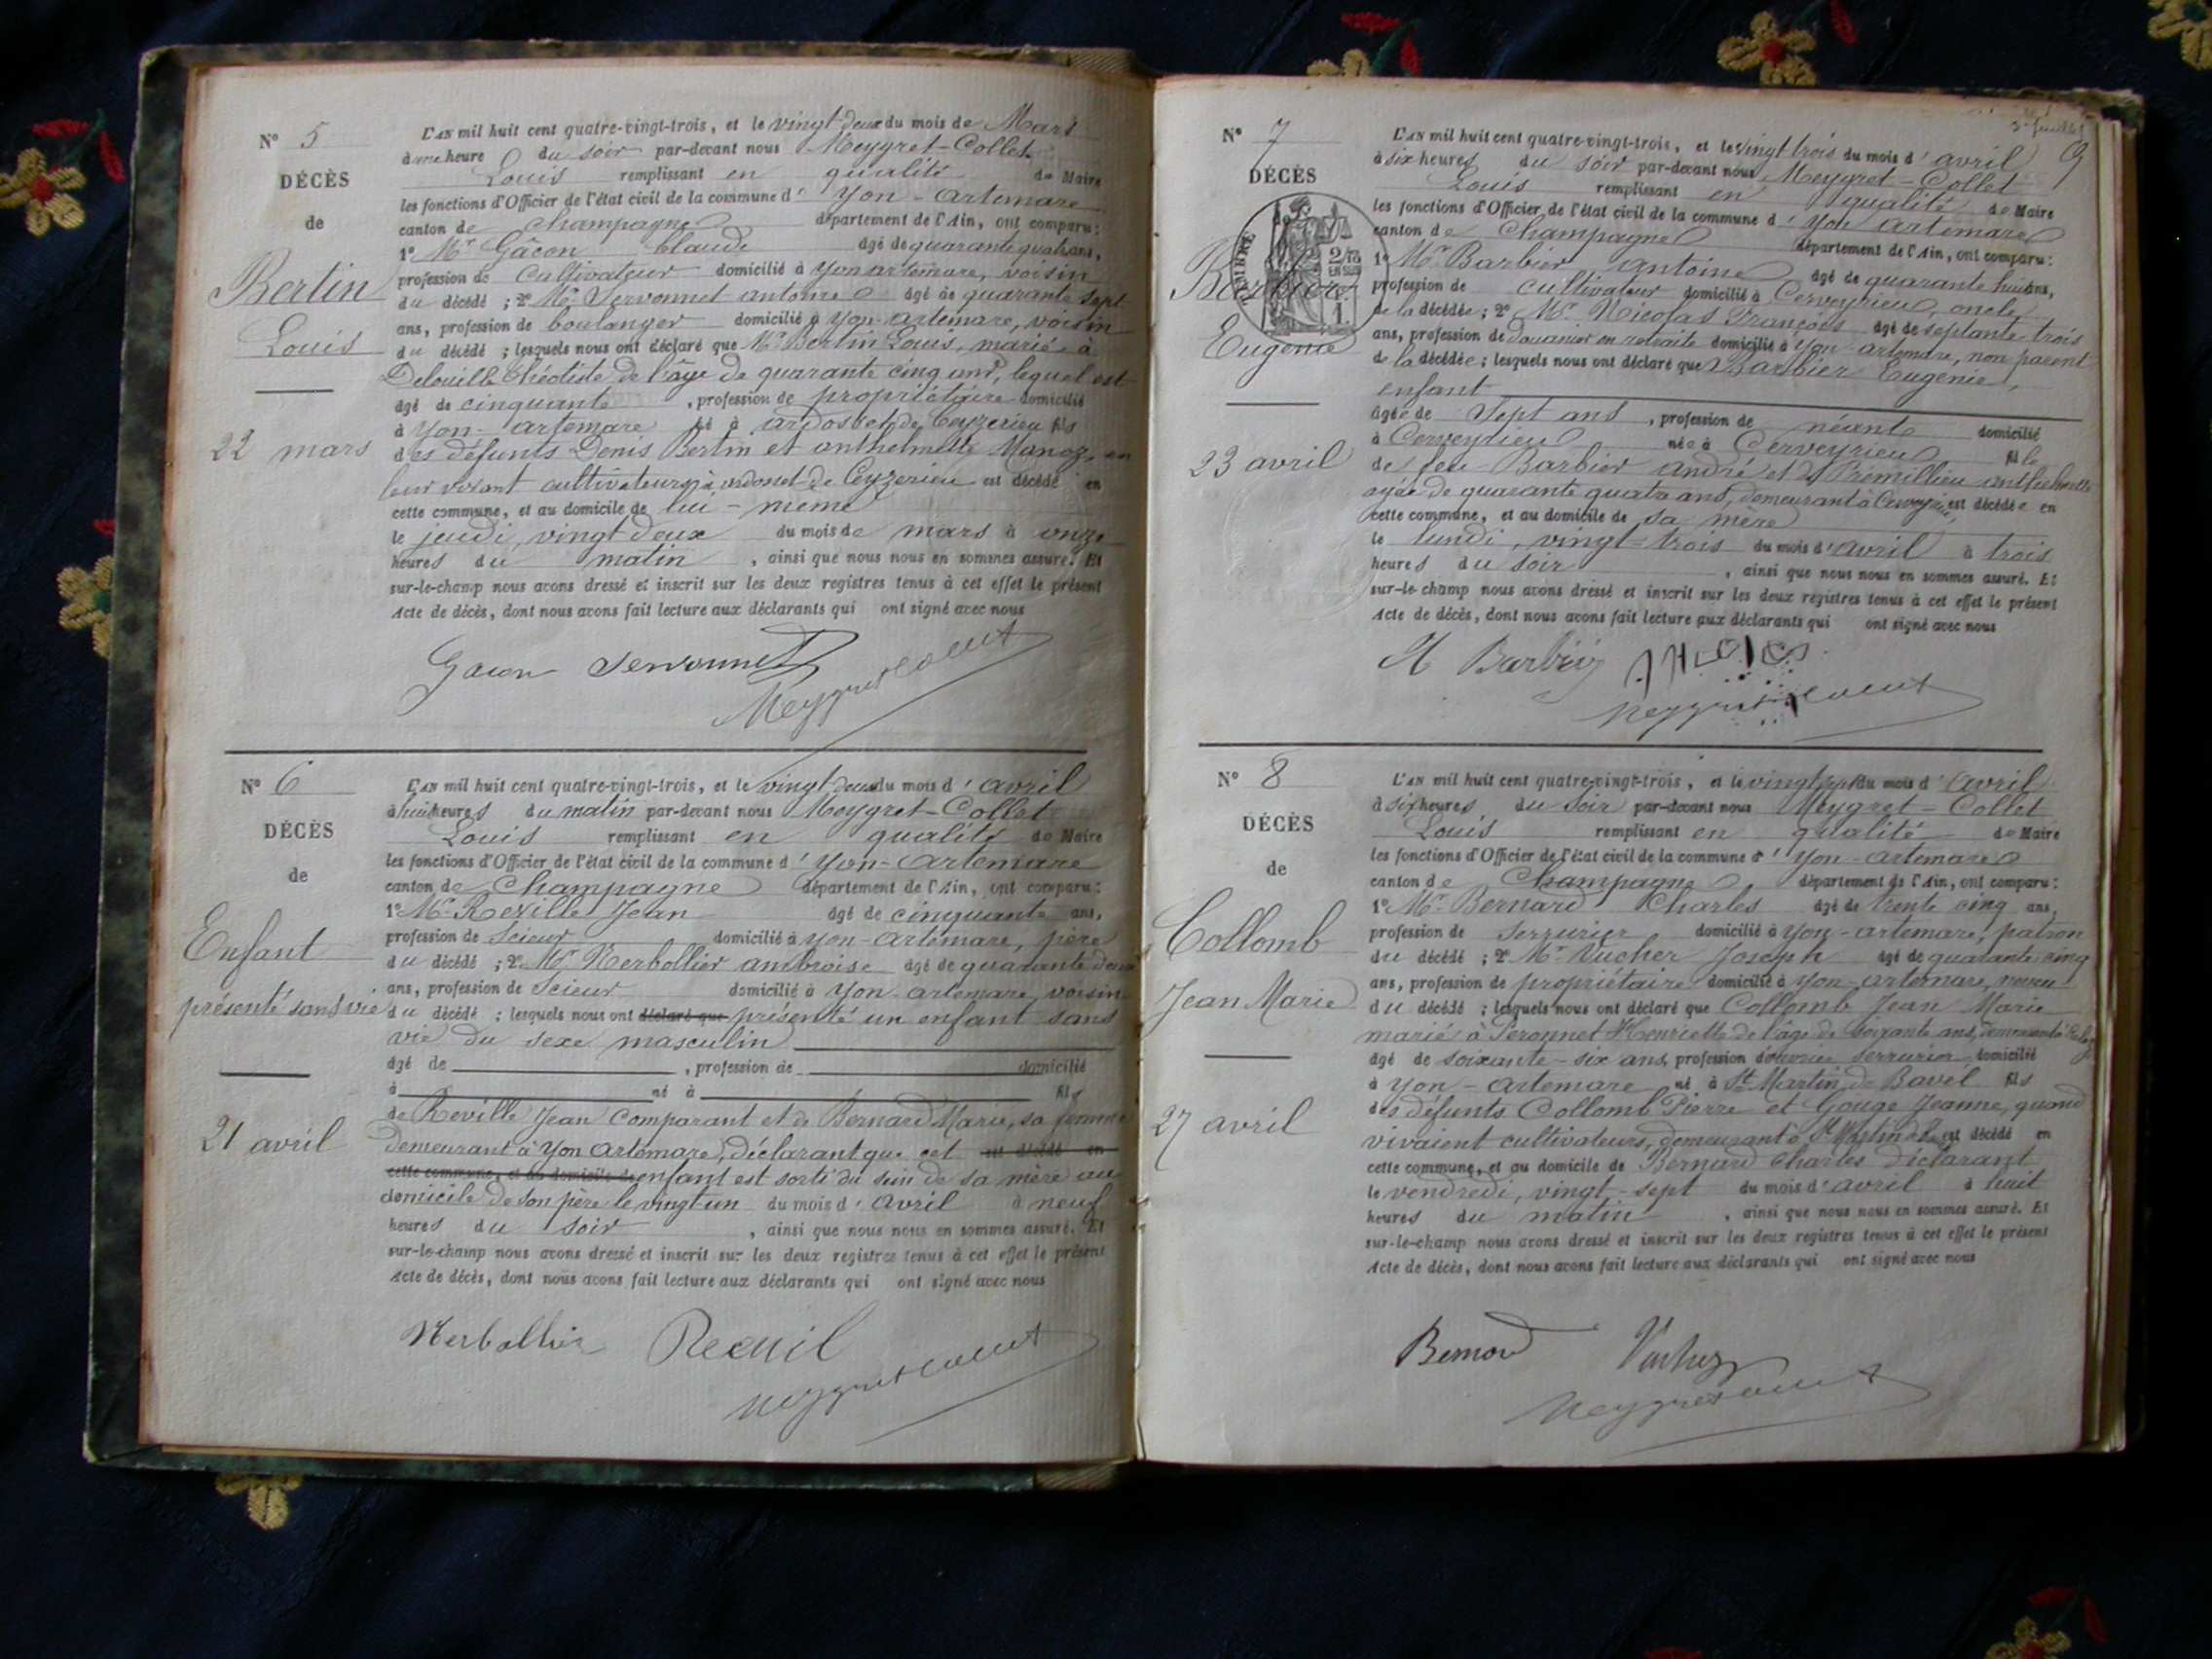 N° 5
DÉCÈS
de
Bertin
Louis
22 mars
L'AN mil huit cent quatre-vingt-trois, et le vingt deux du mois de Mars
à une heure du soir par-devant nous Meygret-Collet
Louis remplissant en qualité de Maire
les fonctions d'Officier de l'état civil de la commune d'Yon-Artemare
canton de Champagne département de l'Ain, ont comparu:
1° Mr Gâcon Claude âgé de quarante quatre ans,
profession de Cultivateur domicilié à Yon artemare, voisin
du décédé ; 2° Mr Servonnet antoine âgé de quarante sept
ans, profession de boulanger domicilié à Yon-artemare, voisin
du décédé ; lesquels nous ont déclaré que Mr Bertin Louis, marié à
de l'âge de quarante cinq ans, lequel est
âgé de cinquante , profession de propriétaire domicilié
à Yon-artemare né à de Ceyzerieu fils
des défunts Denis Bertin et anthelmette
leur vivant cultivateurs à de Ceyzerieu est décédé en
cette commune, et au domicile de lui-même
le jeudi, vingt deux du mois de mars à onze
heures du matin , ainsi que nous nous en sommes assuré. Et
sur-le-champ nous avons dressé et inscrit sur les deux registres tenus à cet effet le présent
Acte de décès, dont nous avons fait lecture aux déclarants qui ont signé avec nous
Gacon Servonnet
Meygret Collet
N° 6
DÉCÈS
de
Enfant
présenté sans vie
21 avril
L'AN mil huit cent quatre-vingt-trois, et le vingt deux du mois d'avril
à huit heures du matin par-devant nous Meygret-Collet
Louis remplissant en qualité de Maire
les fonctions d'Officier de l'état civil de la commune d'Yon-Artemare
canton de Champagne département de l'Ain, ont comparu:
1° Mr Reville Jean âgé de cinquante ans,
profession de Scieur domicilié à Yon-Artemare, père
du décédé ; 2° Mr Herbollier ambroise âgé de quarante deux
ans, profession de Scieur domicilié à Yon-artemare, voisin
du décédé ; lesquels nous ont déclaré que présenté un enfant sans
vie du sexe masculin
âgé de , profession de domicilié
à né à fils
de Reville Jean comparant et de Bernard Marie, sa femme
demeurant à Yon Artemare, déclarant que cet est décédé en
cette commune, et au domicile de enfant est sorti du sein de sa mère au
domicile de son père le vingt un du mois d'avril à neuf
heures du soir , ainsi que nous nous en sommes assuré. Et
sur-le-champ nous avons dressé et inscrit sur les deux registres tenus à cet effet le présent
Acte de décès, dont nous avons fait lecture aux déclarants qui ont signé avec nous
Herbollier
Meygret Collet
N° 7
DÉCÈS
Barbier
Eugénie
23 avril
L'AN mil huit cent quatre-vingt-trois, et le vingt trois du mois d'avril
à six heures du soir par-devant nous Meygret-Collet
Louis remplissant en qualité de Maire
les fonctions d'Officier de l'état civil de la commune d'Yon artemare
canton de Champagne département de l'Ain, ont comparu:
1° Mr Barbier antoine âgé de quarante huit ans,
profession de cultivateur domicilié à Cerveyrieu, oncle
de la décédée ; 2° Mr Nicolas François âgé de septante trois
ans, profession de douanier en retraite domicilié à Yon-artemare, non parent
de la décédée ; lesquels nous ont déclaré que Barbier Eugénie,
enfant
âgée de Sept ans , profession de néante domicilié
à Cerveyrieu née à Cerveyrieu fille
de feu Barbier andré et de Prémillieu anthelmette
agée de quarante quatre ans, demeurant à Cerveyrieu, est décédée en
cette commune, et au domicile de sa mère
le lundi, vingt-trois du mois d'avril à trois
heures du soir , ainsi que nous nous en sommes assuré. Et
sur-le-champ nous avons dressé et inscrit sur les deux registres tenus à cet effet le présent
Acte de décès, dont nous avons fait lecture aux déclarants qui ont signé avec nous
Barbier
Meygret Collet
N° 8
DÉCÈS
de
Collomb
Jean Marie
27 avril
L'AN mil huit cent quatre-vingt-trois, et le vingt sept du mois d'avril
à six heures du soir par-devant nous Meygret-Collet
Louis remplissant en qualité de Maire
les fonctions d'Officier de l'état civil de la commune d'Yon-artemare
canton de Champagne département de l'Ain, ont comparu:
1° Mr Bernard Charles âgé de trente cinq ans,
profession de Serrurier domicilié à Yon-artemare, patron
du décédé ; 2° Mr Vucher Joseph âgé de quarante cinq
ans, profession de propriétaire domicilié à Yon-artemare, neveu
du décédé ; lesquels nous ont déclaré que Collomb Jean Marie
marié à Peronnet Henriette de l'âge de soixante ans, demeurant à
âgé de soixante-six ans, profession d'ouvrier Serrurier domicilié
à Yon-Artemare né à St Martin de Bavel fils
des défunts Collomb Pierre et Gouge Jeanne, quand
vivaient cultivateurs, demeurant à St Martin de est décédé en
cette commune, et au domicile de Bernard Charles déclarant
le vendredi, vingt-sept du mois d'avril à huit
heures du matin , ainsi que nous nous en sommes assuré. Et
sur-le-champ nous avons dressé et inscrit sur les deux registres tenus à cet effet le présent
Acte de décès, dont nous avons fait lecture aux déclarants qui ont signé avec nous
Bernard Vucher
Meygret Collet